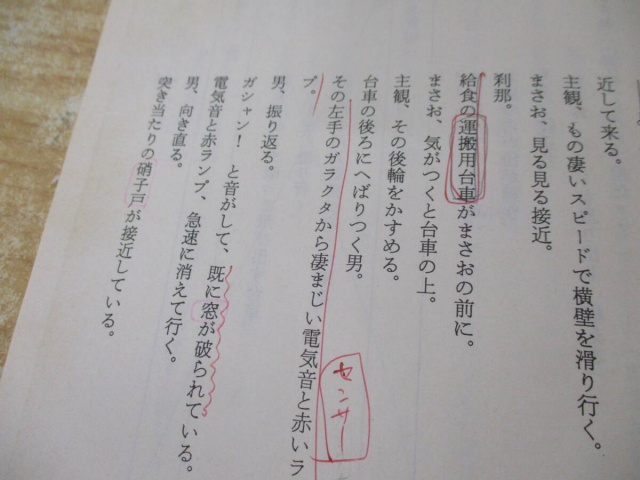 近して来る。
主観、もの凄いスピードで横壁を滑り行く。
まさお、見る見る接近。
刹那。
給食の運搬用台車がまさおの前に。
まさお、気がつくと台車の上。
主観、その後輪をかすめる。
台車の後ろにへばりつく男。
その左手のガラクタから凄まじい電気音と赤いラ
プ。
センサー
男、振り返る。
ガシャン！　と音がして、既に窓が破られている。
電気音と赤ランプ、急速に消えて行く。
男、向き直る。
突き当たりの硝子戸が接近している。